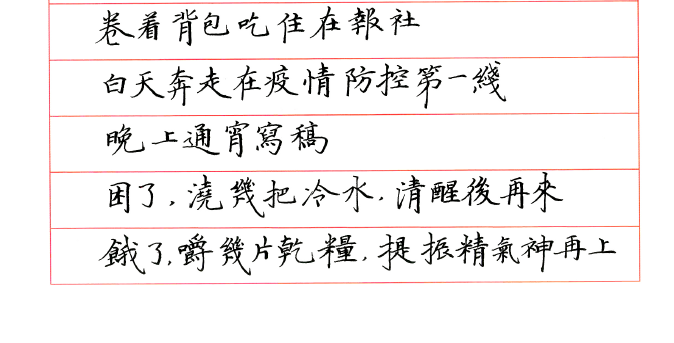 卷着背包吃住在報社
白天奔走在疫情防控第一綫
晚上通宵寫稿
困了，澆幾把冷水，清醒後再來
餓了，嚼幾片乾糧，提振精氣神再上